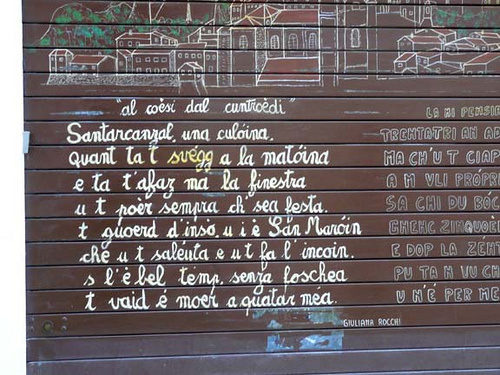 "al coèsi dal cuntroèdi"
Santarcanzal, una culóina,
quant ta t svégg a la matóina
e ta t'afaz ma la finestra
u t poèr sempra ch' sea festa.
t guoerd d'insò, u i è San Maróin
che u t saleuta e u t fa l'incoin.
s l'è bel temp, senza foschea
t vaid é moer a quatar méa.
GIULIANA ROCCHI
LA MI PENSI
TRENTATRI AN AD
MA CH'U T CIAP
A M VLI PRÓPRI
SA CHI DU BÓC
E DOP LA ZENT
PU TA N VU CH
U N'É PER ME